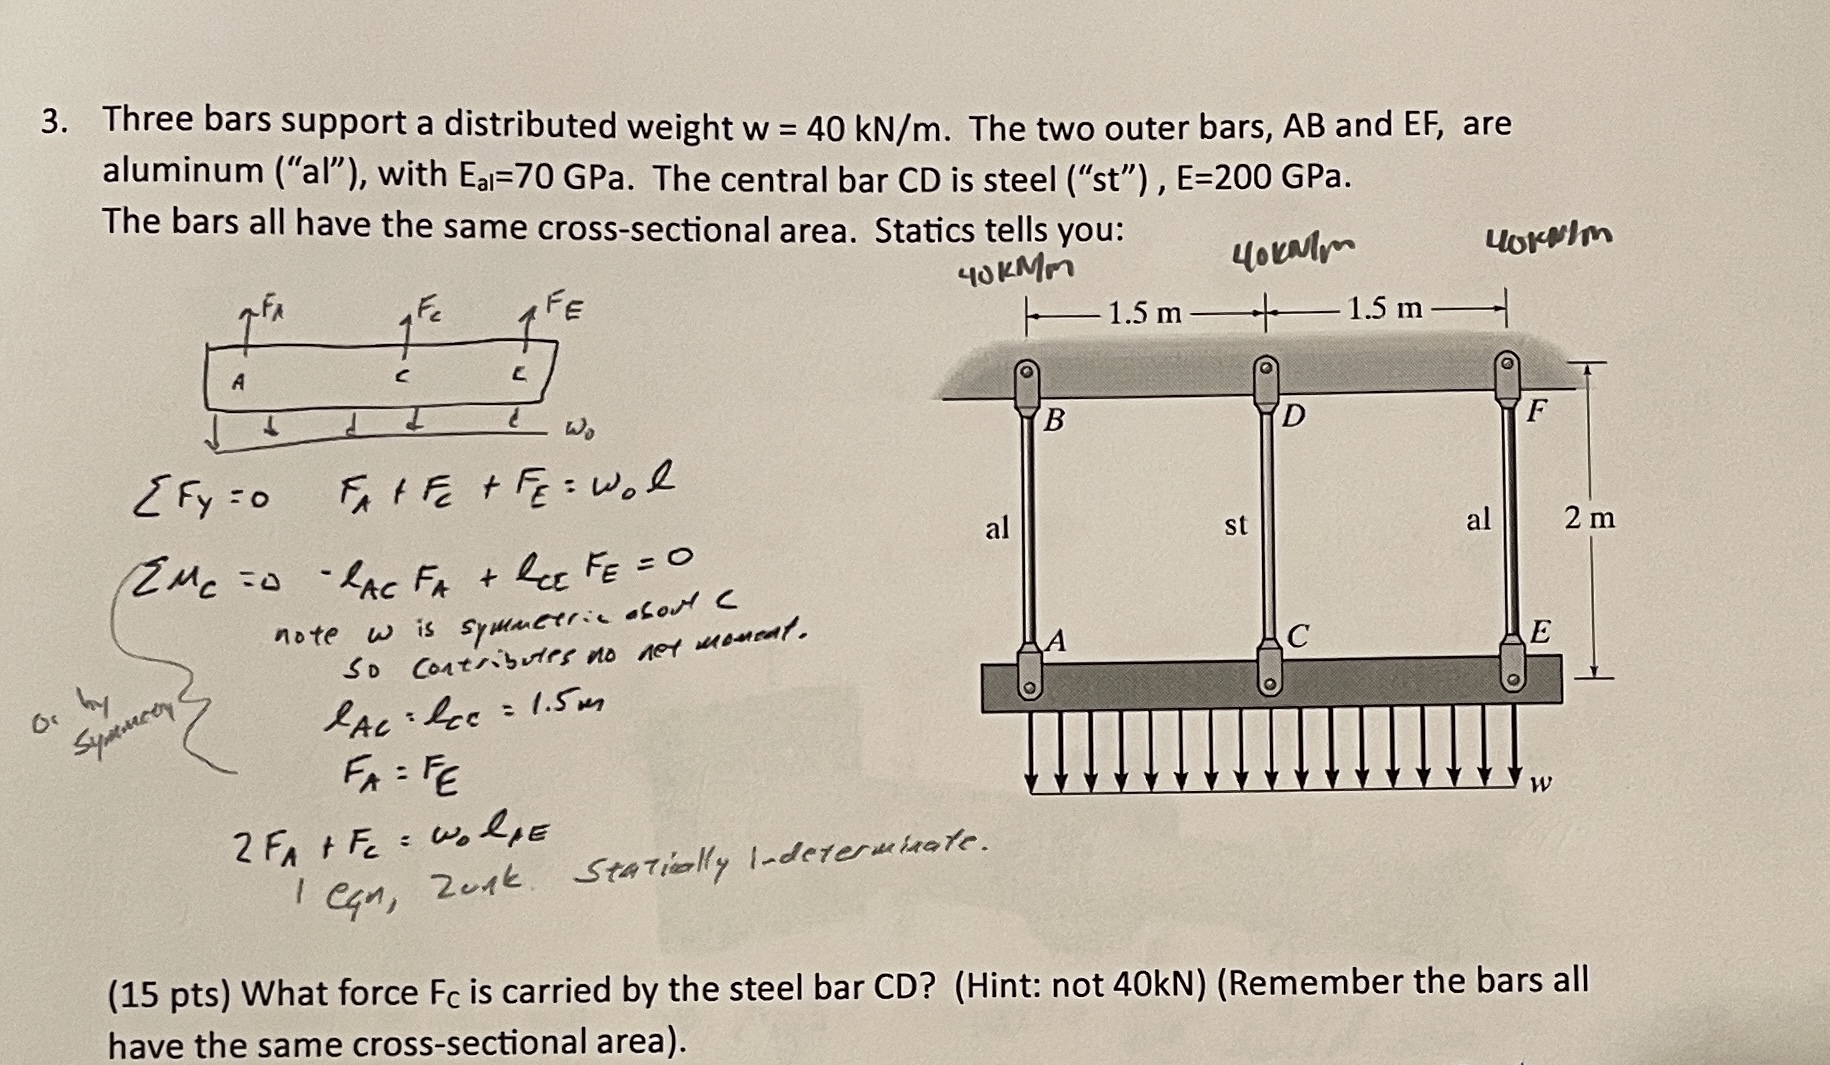 3. Three bars support a distributed weight w = 40 kN/m. The two outer bars, AB and EF, are
aluminum ("al"), with Eal=70 GPa. The central bar CD is steel ("st") , E=200 GPa.
The bars all have the same cross-sectional area. Statics tells you:
40KN/m
40KN/m
40KN/m
1.5 m
1.5 m
FA
FC
FE
A
C
E
w₀
B
D
F
al
st
al
2 m
A
C
E
w
ΣFy=0 FA + FC + FE = w₀ l
ΣMC =0 -lAC FA + lCE FE = 0
note w is symmetric about C
so contributes no net moment.
or by
symmetry
lAC = lCE = 1.5m
FA = FE
2 FA + FC = w₀ lAE
1 eqn, 2 unk. Statically Indeterminate.
(15 pts) What force FC is carried by the steel bar CD? (Hint: not 40kN) (Remember the bars all
have the same cross-sectional area).